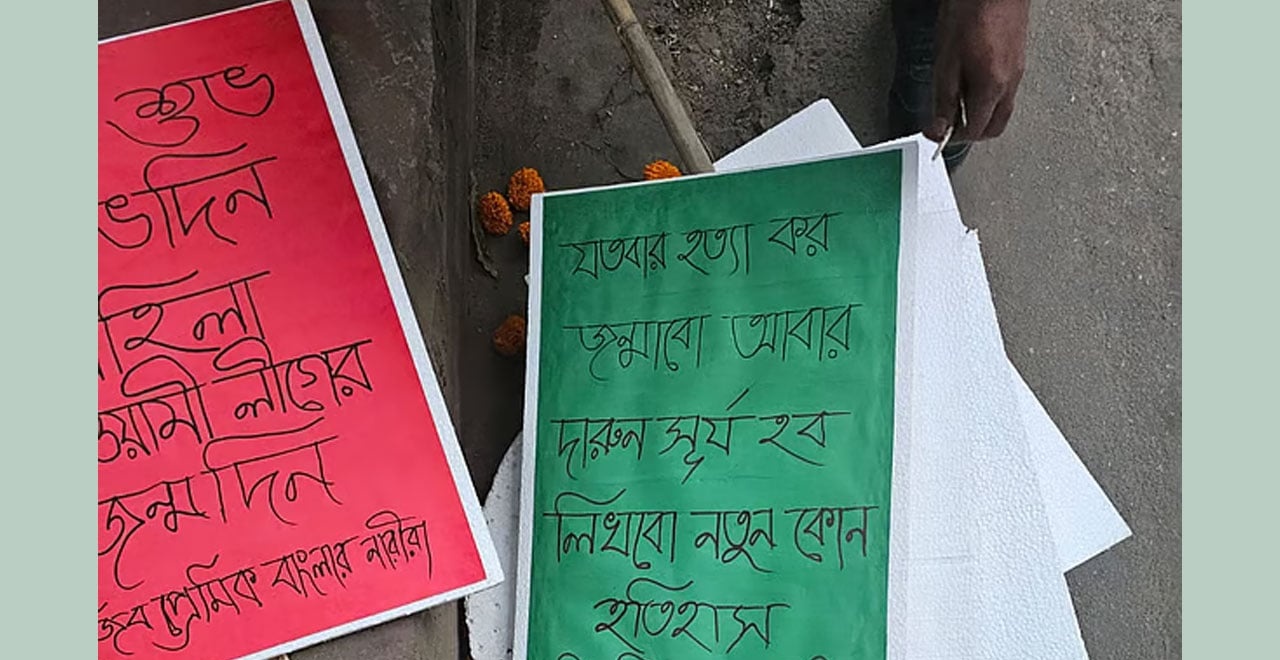 শুভ
ভদিন
হিলা
ওয়ামী লীগের
জন্মদিন
প্রেমিক বাংলার নারীরা
যতবার হত্যা কর
জন্মাবো আবার
দারুন সূর্য হব
লিখবো নতুন কোন
ইতিহাস